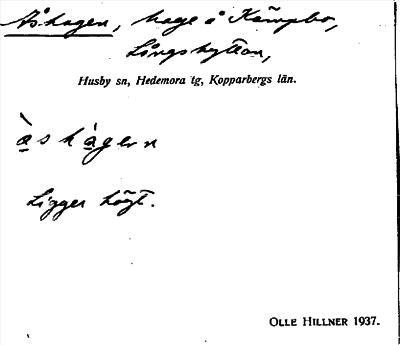 Åshagen, hage å Kämpbo,
Långshyttan,
Husby sn, Hedemora tg, Kopparbergs län.
å̱s hà̱gern
Ligger högt.
OLLE HILLNER 1937.